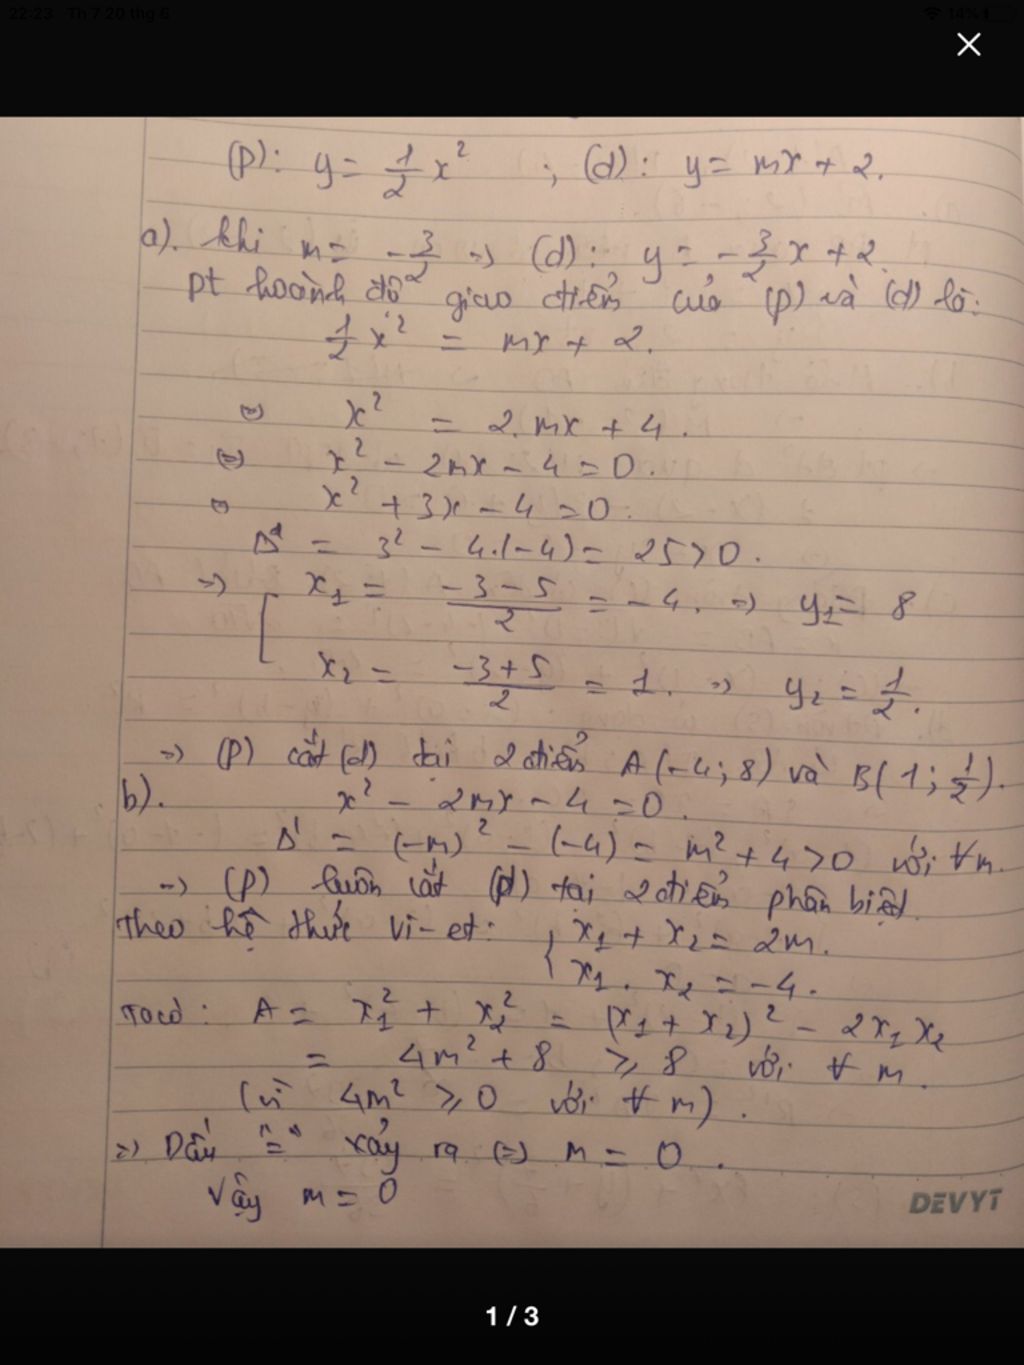 22:23 Th 7 20 thg 6
14%
(P): y = 1/2 x² ; (d): y = mx + 2.
a). khi m = -3/2 => (d): y = -3/2 x + 2.
pt hoành độ giao điểm của (P) và (d) là:
1/2 x² = mx + 2.
<=> x² = 2.mx + 4.
<=> x² - 2mx - 4 = 0.
<=> x² + 3x - 4 = 0.
Δ = 3² - 4.(-4) = 25 > 0.
=> [ x₁ = (-3 - 5)/2 = -4. => y₁ = 8
x₂ = (-3 + 5)/2 = 1. => y₂ = 1/2.
=> (P) cắt (d) tại 2 điểm A(-4; 8) và B(1; 1/2).
b). x² - 2mx - 4 = 0.
Δ' = (-m)² - (-4) = m² + 4 > 0 với ∀m.
=> (P) luôn cắt (d) tại 2 điểm phân biệt.
Theo hệ thức Vi-et: { x₁ + x₂ = 2m.
x₁. x₂ = -4.
Ta có: A = x₁² + x₂² = (x₁ + x₂)² - 2x₁x₂
= 4m² + 8 ≥ 8 với ∀ m.
(vì 4m² ≥ 0 với ∀ m).
=> Dấu "=" xảy ra <=> m = 0.
Vậy m = 0
DEVYT
1 / 3